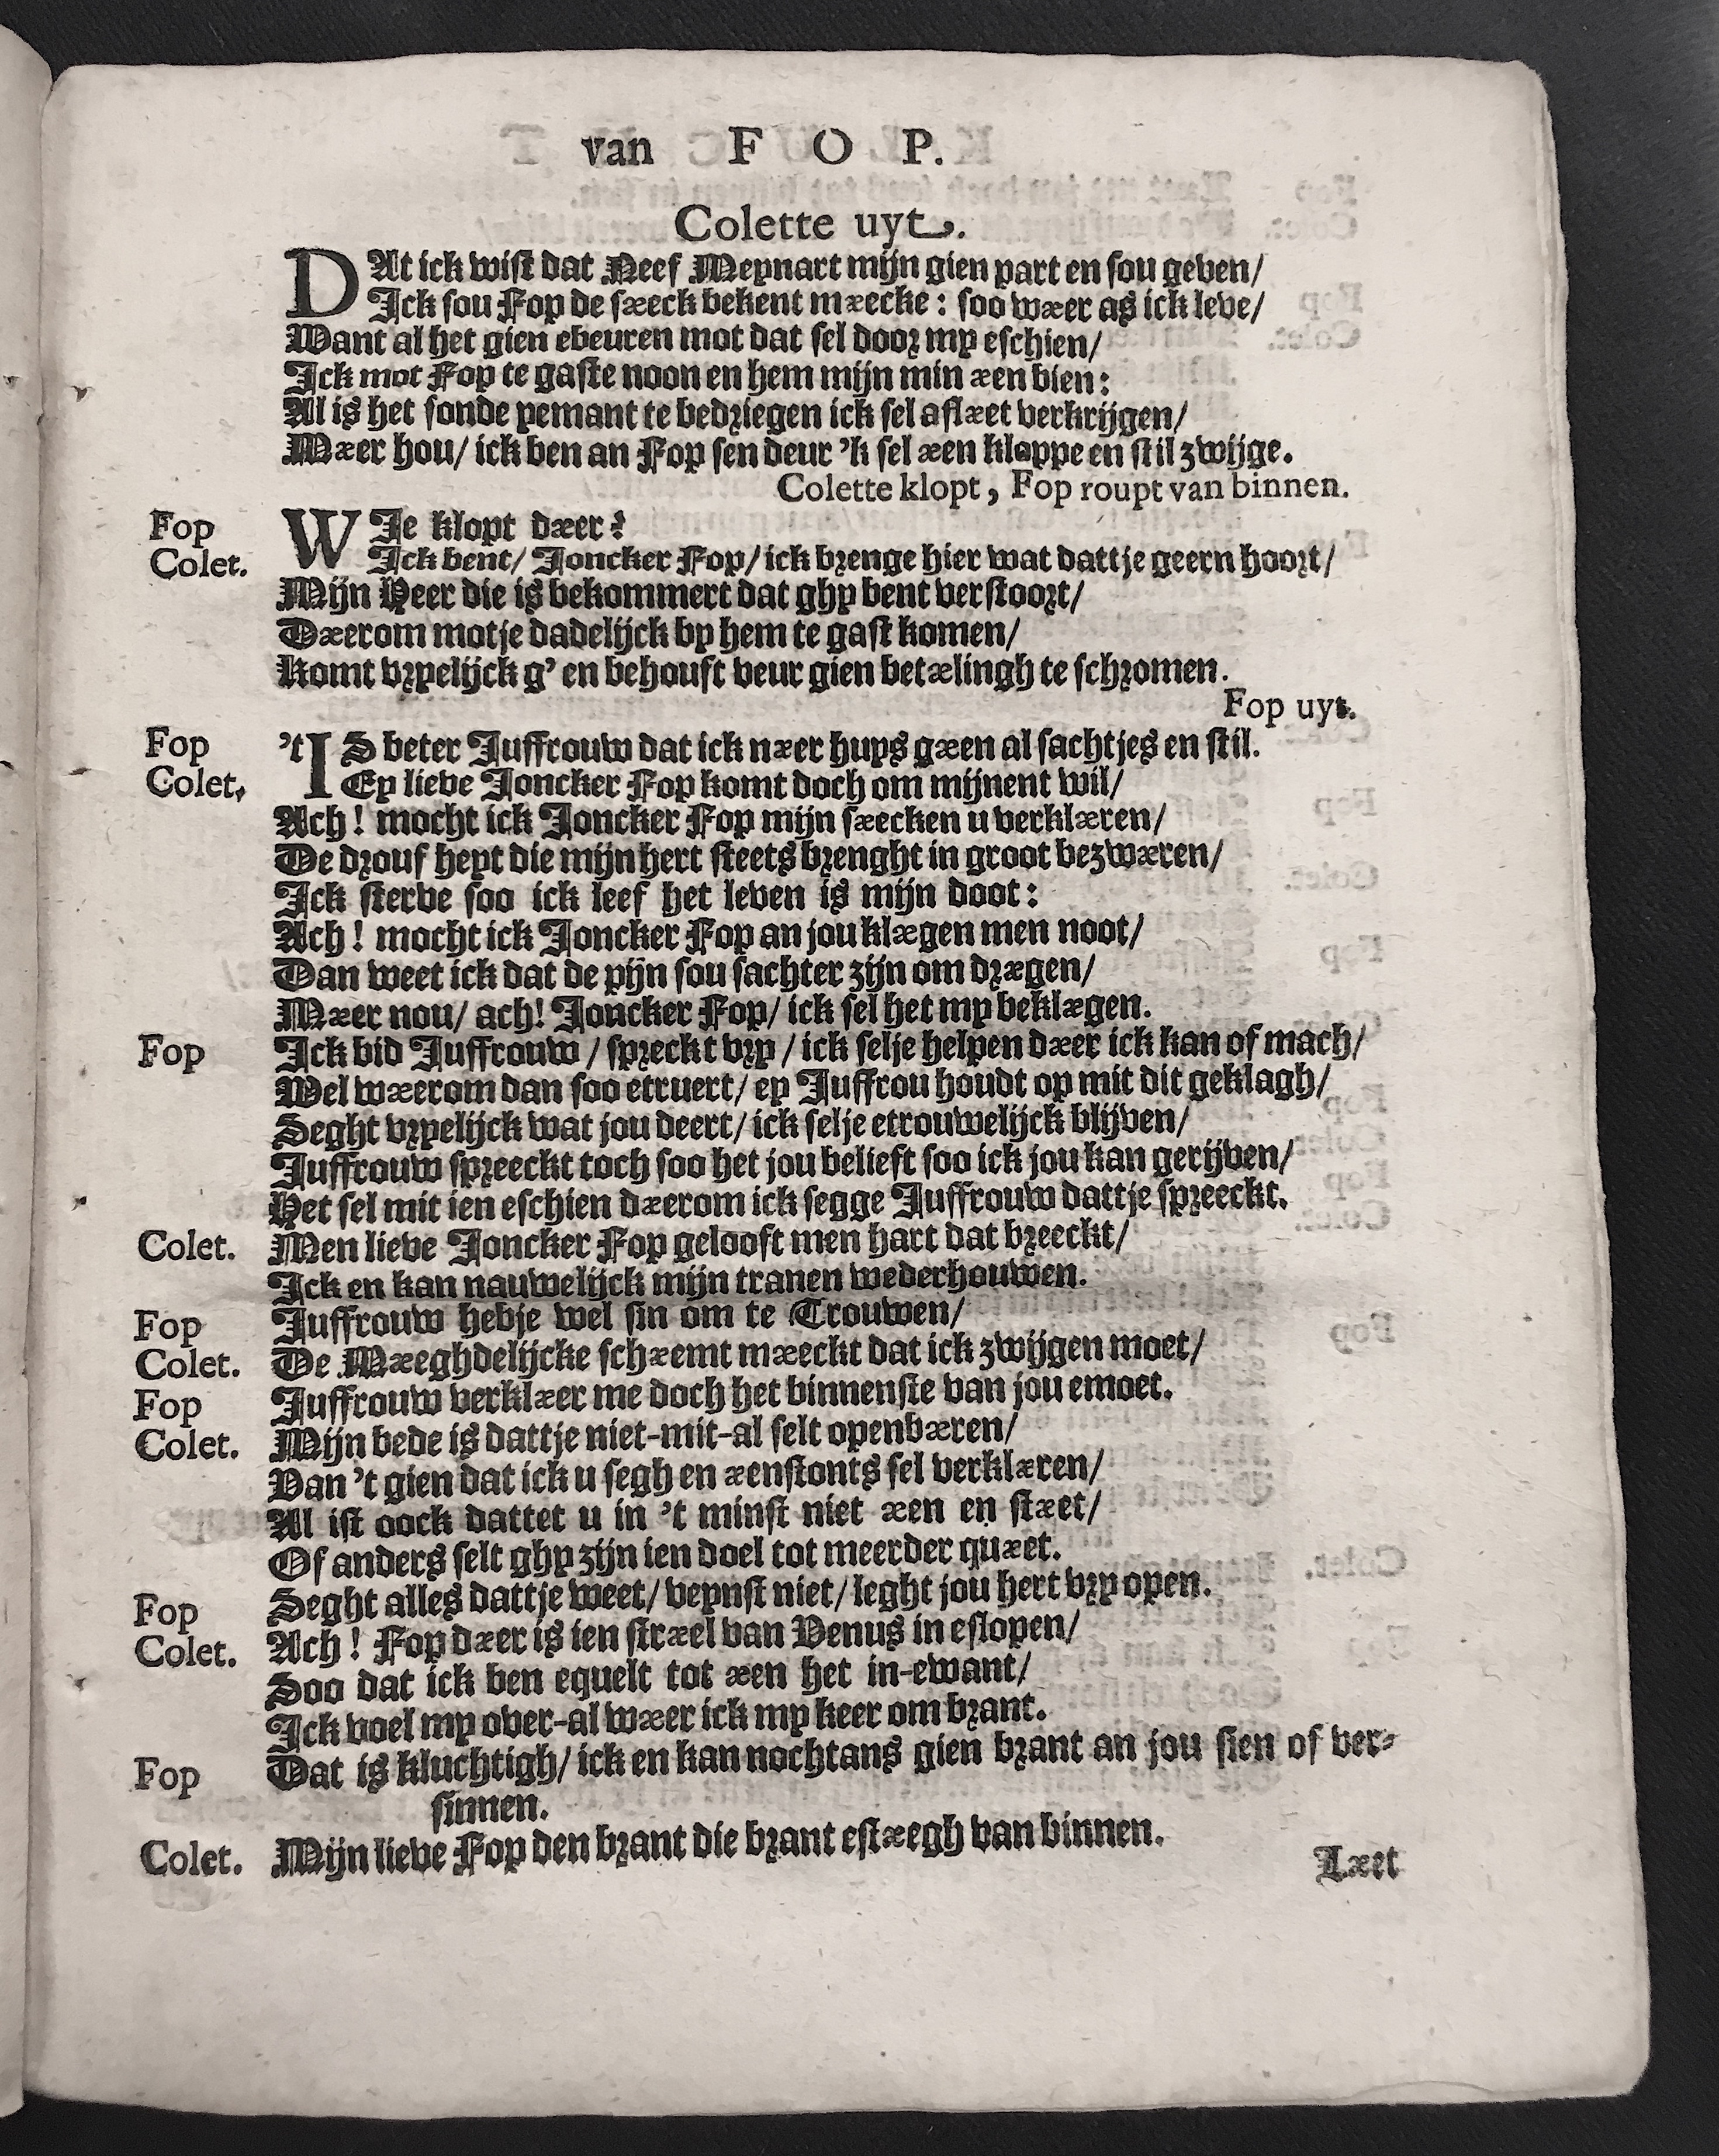 van F O P.
Colette uyt.
DAt ick wist dat Neef Meynart mijn gien part en sou geven/
Ick sou Fop de sæeck bekent mæcke: soo wær as ick leve/
Want al het gien ebeuren mot dat sel door my eschien/
Ick mot Fop te gaste noon en hem mijn min æen bien:
Al is het sonde yemant te bedriegen ick sel aflæet verkrijgen/
Mæer hou/ ick ben an Fop sen deur 'k sel æen kloppe en stil zwijge.
Colette klopt, Fop roupt van binnen.
Fop WIe klopt dæer?
Colet. Ick bent/ Joncker Fop/ ick brenge hier wat dattje geern hoort/
Mijn Heer die is bekommert dat ghy bent verstoort/
Dæerom motje dadelijck by hem te gast komen/
Komt vryelijck g' en behouft veur gien betælingh te schromen.
Fop uyt.
Fop 'tIS beter Juffrouw dat ick nær huys gæen al sachtjes en stil.
Colet. Ey lieve Joncker Fop komt doch om mijnent wil/
Ach! mocht ick Joncker Fop mijn sæcken u verklæren/
De drouf heyt die mijn hert steets brenght in groot bezwæren/
Ick sterve soo ick leef het leven is mijn doot:
Ach! mocht ick Joncker Fop an jou klægen men noot/
Dan weet ick dat de pijn sou sachter zijn om drægen/
Mæer nou/ ach! Joncker Fop/ ick sel het my beklægen.
Fop Ick bid Juffrouw/ spreckt vry/ ick selje helpen dæer ick kan of mach/
Wel wæerom dan soo etruert/ ey Juffrou houdt op mit dit geklagh/
Seght vryelijck wat jou deert/ ick selje etrouwelijck blijven/
Juffrouw spreeckt toch soo het jou belieft soo ick jou kan gerijven/
Het sel mit ien eschien dæerom ick segge Juffrouw dattje spreeckt.
Colet. Men lieve Joncker Fop gelooft men hart dat breeckt/
Ick en kan nauwelijck mijn tranen wederhouwen.
Fop Juffrouw hebje wel sin om te Trouwen/
Colet. De Mæeghdelijcke schæemt mæeckt dat ick zwijgen moet/
Fop Juffrouw verklæer me doch het binnenste van jou emoet.
Colet. Mijn bede is dattje niet-mit-al selt openbæren/
Van 't gien dat ick u segh en æenstonts sel verklæren/
Al ist oock dattet u in 't minst niet æen en stæet/
Of anders selt ghy zijn ien doel tot meerder quæet.
Fop Seght alles dattje weet/ veynst niet/ leght jou hert vry open.
Colet. Ach! Fop dæer is ien stræel van Venus in eslopen/
Soo dat ick ben equelt tot æen het in-ewant/
Ick voel my over-al wæer ick my keer om brant.
Fop Dat is kluchtigh/ ick en kan nochtans gien brant an jou sien of ver-
sinnen.
Colet. Mijn lieve Fop den brant die brant estæegh van binnen.
Læet